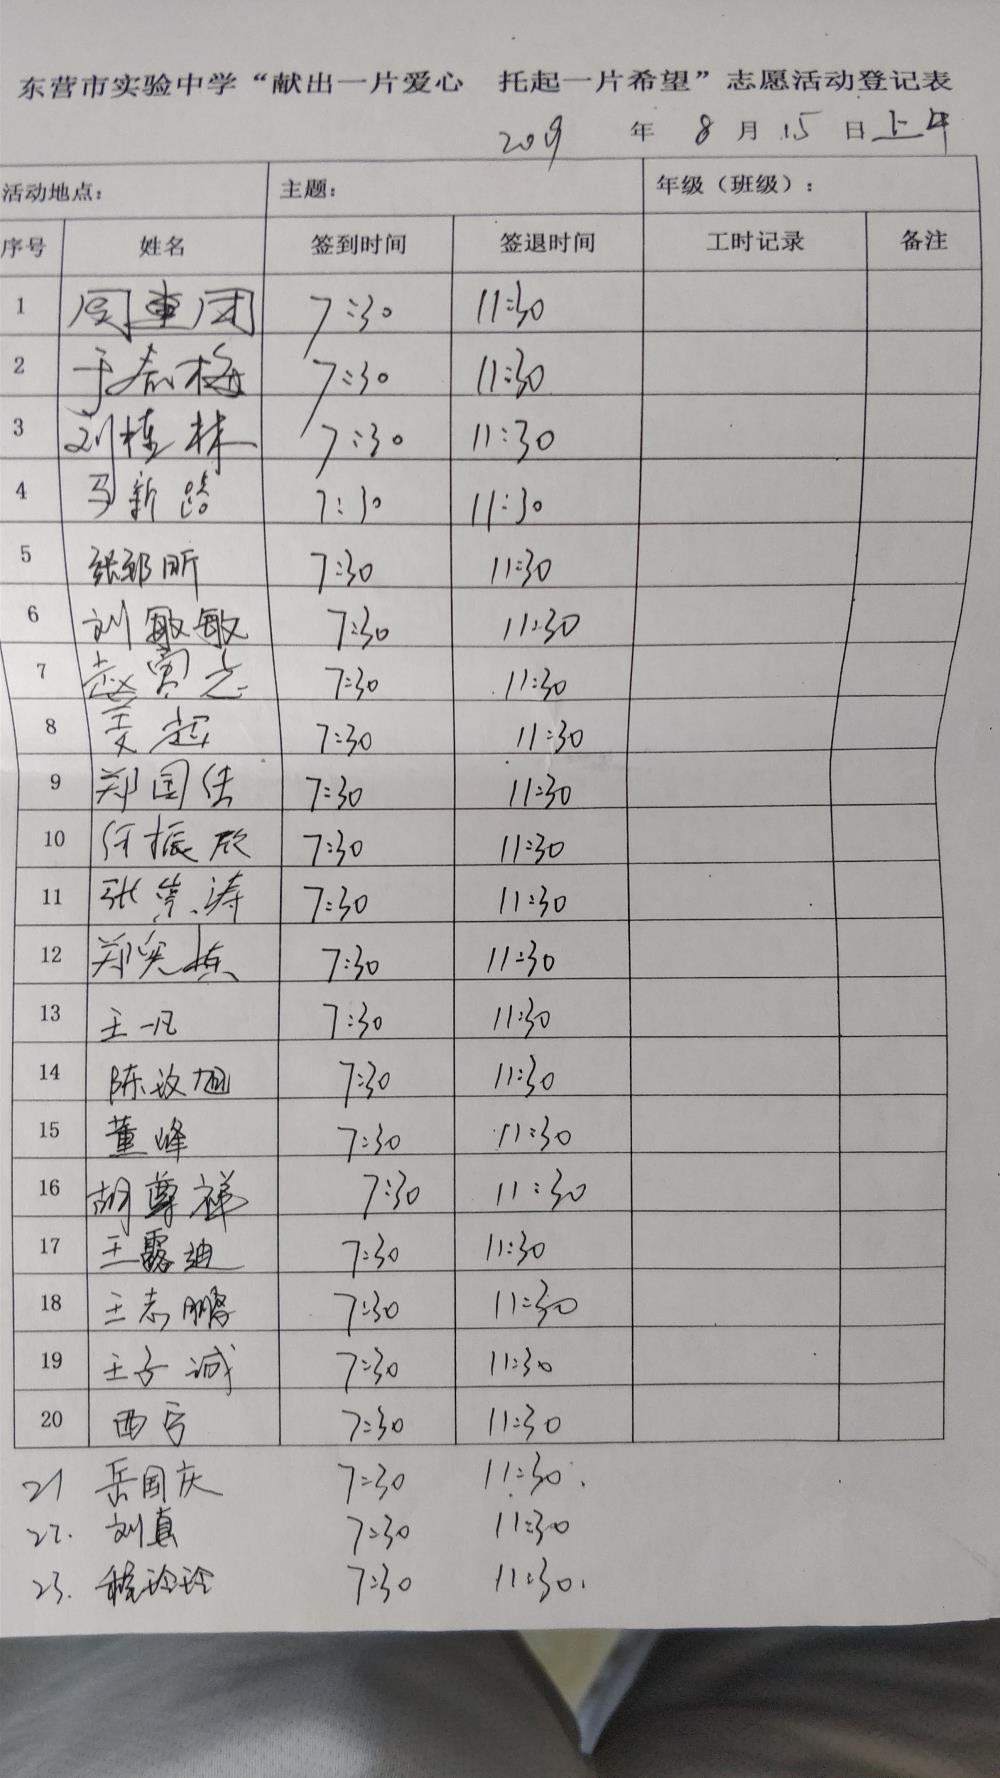 东营市实验中学“献出一片爱心 托起一片希望”志愿活动登记表
2019 年 8 月 15 日 上午
活动地点： 主题： 年级（班级）：
序号 姓名 签到时间 签退时间 工时记录 备注
1 7:30 11:30
2 于春梅 7:30 11:30
3 刘栋林 7:30 11:30
4 马新路 7:30 11:30
5 张郅昕 7:30 11:30
6 刘敏敏 7:30 11:30
7 赵 7:30 11:30
8 姜起 7:30 11:30
9 郑国 7:30 11:30
10 任振欣 7:30 11:30
11 张崇涛 7:30 11:30
12 郑宪栋 7:30 11:30
13 王一凡 7:30 11:30
14 陈汝旭 7:30 11:30
15 董峰 7:30 11:30
16 胡尊祥 7:30 11:30
17 王露迪 7:30 11:30
18 王志鹏 7:30 11:30
19 王子诚 7:30 11:30
20 西 7:30 11:30
21 岳国庆 7:30 11:30.
22. 刘真 7:30 11:30
23. 玲玲 7:30 11:30.